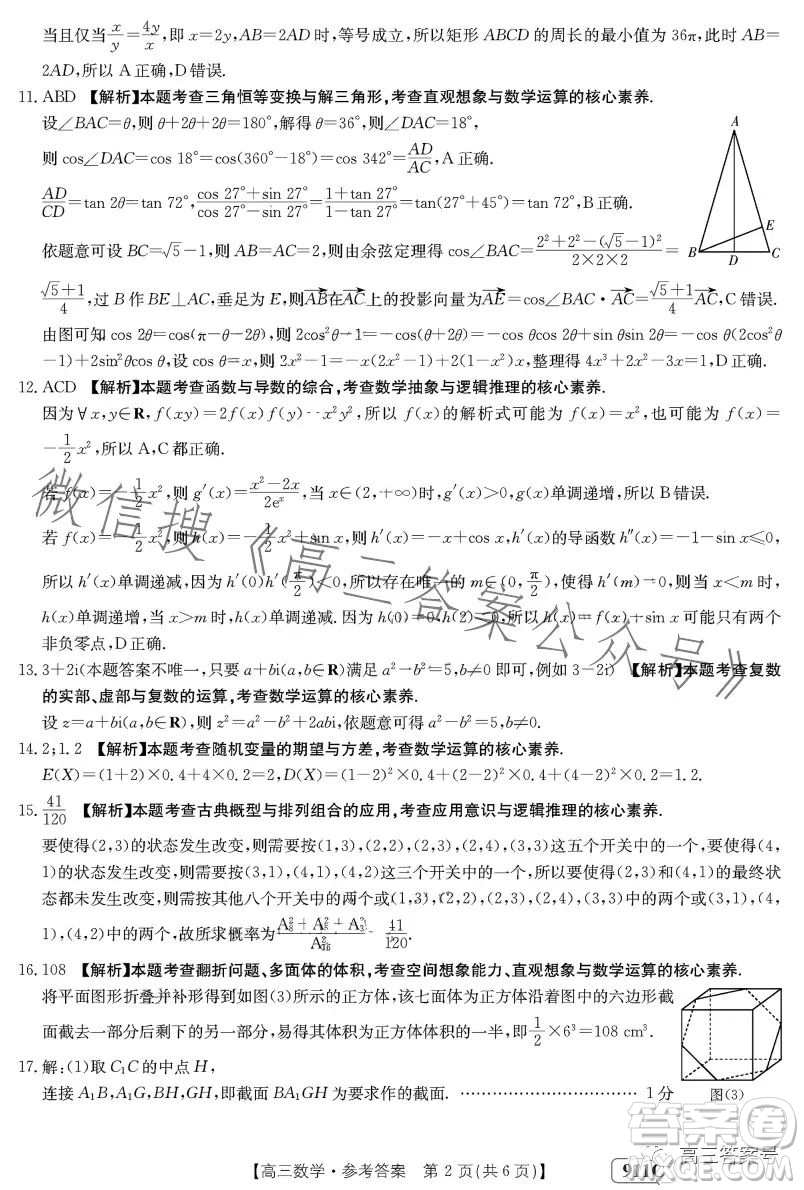 当且仅当x/y=4y/x,即 x=2y,AB=2AD 时,等号成立,所以矩形 ABCD 的周长的最小值为 36π,此时 AB=
2AD,所以 A 正确,D 错误.
11. ABD 【解析】本题考查三角恒等变换与解三角形,考查直观想象与数学运算的核心素养.
设∠BAC=θ,则 θ+2θ+2θ=180°,解得 θ=36°,则∠DAC=18°,
则 cos∠DAC=cos 18°=cos(360°-18°)=cos 342°=AD/AC,A 正确.
AD/CD=tan 2θ=tan 72°,(cos 27°+sin 27°)/(cos 27°-sin 27°)=(1+tan 27°)/(1-tan 27°)=tan(27°+45°)=tan 72°,B 正确.
依题意可设 BC=√5-1,则 AB=AC=2,则由余弦定理得 cos∠BAC=(2²+2²-(√5-1)²)/(2×2×2)=
(√5+1)/4,过 B 作 BE⊥AC,垂足为 E,则AB在AC上的投影向量为AE=cos∠BAC·AC=(√5+1)/4 AC,C 错误.
由图可知 cos 2θ=cos(π-θ-2θ),则 2cos²θ-1=-cos(θ+2θ)=-cos θcos 2θ+sin θsin 2θ=-cos θ(2cos²θ
-1)+2sin²θcos θ,设 cos θ=x,则 2x²-1=-x(2x²-1)+2(1-x²)x,整理得 4x³+2x²-3x=1,D 正确.
A
B
D
C
E
12. ACD 【解析】本题考查函数与导数的综合,考查数学抽象与逻辑推理的核心素养.
因为∀x,y∈R,f(xy)=2f(x)f(y)-x²y²,所以 f(x)的解析式可能为 f(x)=x²,也可能为 f(x)=
-1/2 x²,所以 A,C 都正确.
若 f(x)=-1/2 x²,则 g′(x)=(x²-2x)/(2eˣ),当 x∈(2,+∞)时,g′(x)>0,g(x)单调递增,所以 B 错误.
若 f(x)=-1/2 x²,则 h(x)=-1/2 x²+sin x,h′(x)=-x+cos x,h′(x)的导函数 h″(x)=-1-sin x≤0,
所以 h′(x)单调递减,因为 h′(0)h′(π/2)<0,所以存在唯一的 m∈(0,π/2),使得 h′(m)=0,所以当 x<m 时,
h(x)单调递增,当 x>m 时,h(x)单调递减.因为 h(0)=0,所以 h(x)=f(x)+sin x 可能只有两个
非负零点,D 正确.
13. 3+2i(本题答案不唯一,只要 a+bi(a,b∈R)满足 a²-b²=5,b≠0 即可,例如 3-2i) 【解析】本题考查复数
的实部、虚部与复数的运算,考查数学运算的核心素养.
设 z=a+bi(a,b∈R),则 z²=a²-b²+2abi,依题意可得 a²-b²=5,b≠0.
14. 2;1.2 【解析】本题考查随机变量的期望与方差,考查数学运算的核心素养.
E(X)=(1+2)×0.4+4×0.2=2,D(X)=(1-2)²×0.4+(2-2)²×0.4+(4-2)²×0.2=1.2.
15. 41/120 【解析】本题考查古典概型与排列组合的应用,考查应用意识与逻辑推理的核心素养.
要使得(2,3)的状态发生改变,则需要按(1,3),(2,2),(2,3),(2,4),(3,3)这五个开关中的一个,要使得(4,
1)的状态发生改变,则需要按(3,1),(4,1),(4,2)这三个开关中的一个,所以要使得(2,3)和(4,1)的最终状
态都未发生改变,则需按其他八个开关中的两个或(1,3),(2,2),(2,3),(2,4),(3,3)中的两个或(3,1),(4,
1),(4,2)中的两个,故所求概率为(A₈²+A₅²+A₃²)/A₁₆²=41/120.
16. 108 【解析】本题考查翻折问题、多面体的体积,考查空间想象能力、直观想象与数学运算的核心素养.
将平面图形折叠并补形得到如图(3)所示的正方体,该七面体为正方体沿着图中的六边形截
面截去一部分后剩下的另一部分,易得其体积为正方体体积的一半,即1/2×6³=108 cm³.
图(3)
17. 解:(1)取 C₁C 的中点 H,
连接 A₁B,A₁G,BH,GH,即截面 BA₁GH 为要求作的截面. ………………………… 1 分
【高三数学·参考答案 第 2 页(共 6 页)】
911C
微信搜《高三答案公众号》
高三答案号
答案圈